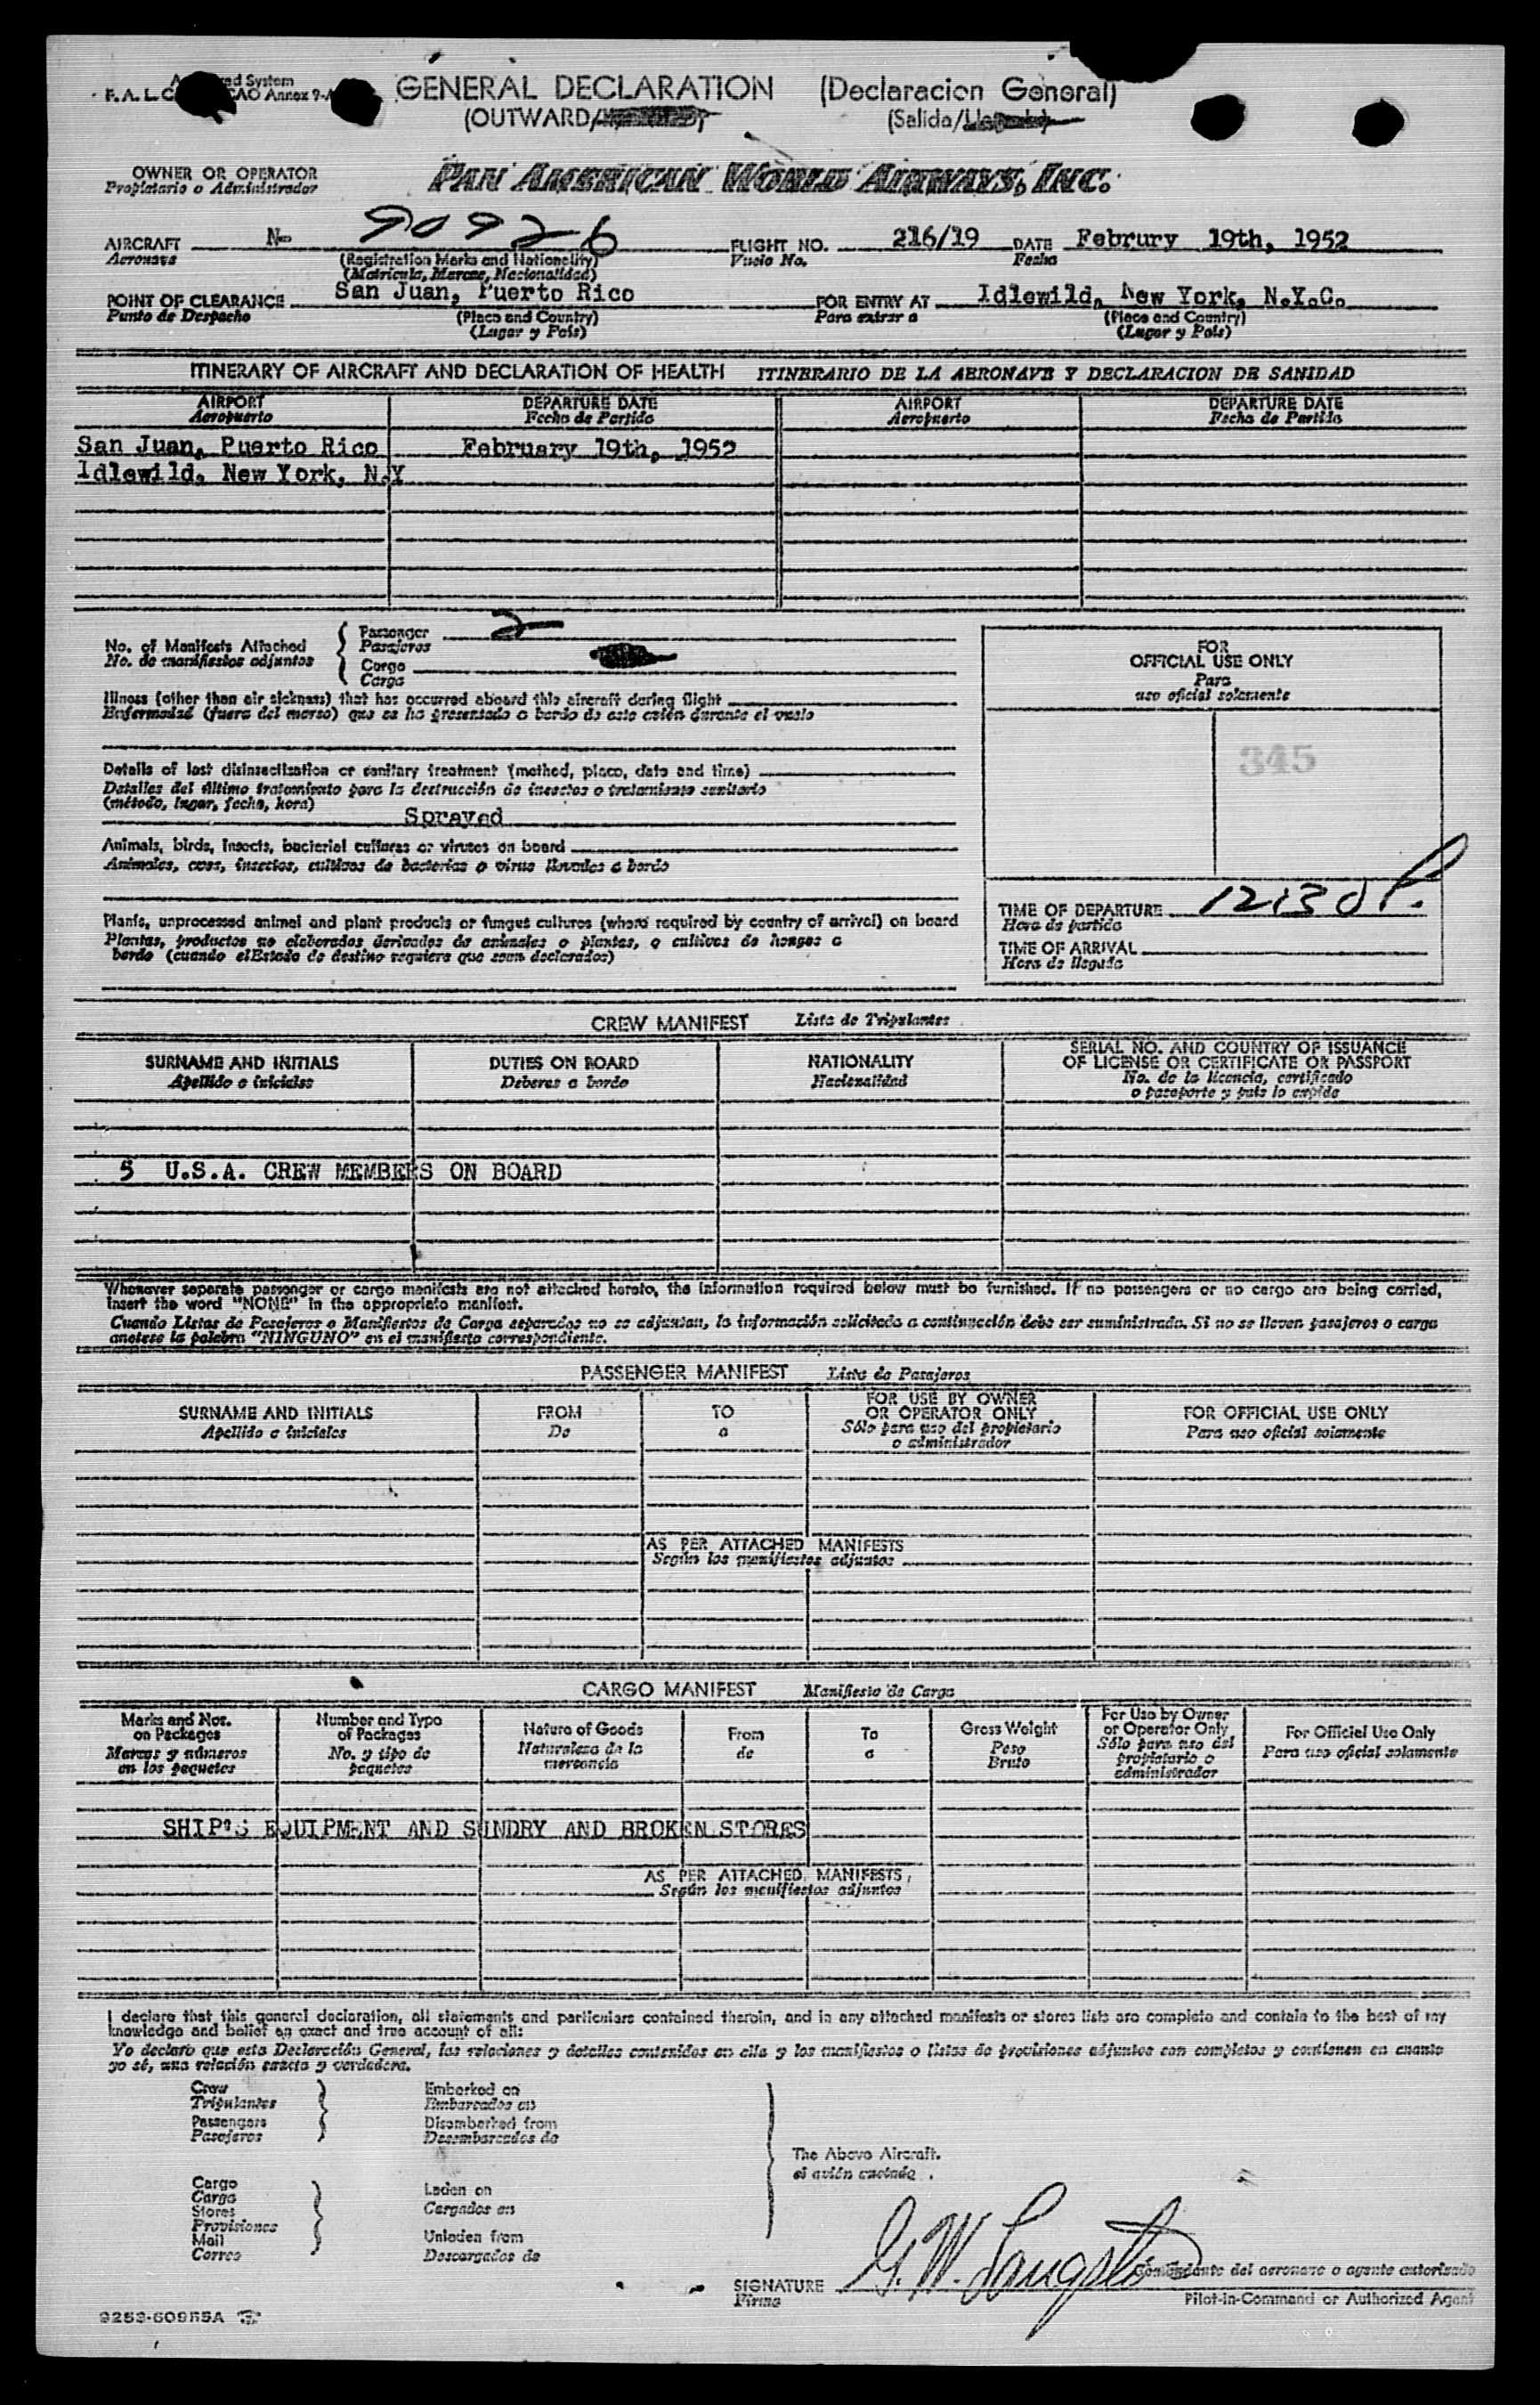 GENERAL DECLARATION (Declaracion General)
(OUTWARD/ (Salida/
OWNER OR OPERATOR
Propietario o Administrador
PAN AMERICAN WORLD AIRWAYS, INC.
AIRCRAFT N- 90926 FLIGHT NO. 216/19 DATE Februry 19th, 1952
Aeronave (Registration Marks and Nationality) Vuelo No. Fecha
(Matricula, Marcas, Nacionalidad)
POINT OF CLEARANCE San Juan, Puerto Rico FOR ENTRY AT Idlewild, New York, N.Y.C.
Punto de Despacho (Place and Country) Para entrar a (Place and Country)
(Lugar y País) (Lugar y País)
ITINERARY OF AIRCRAFT AND DECLARATION OF HEALTH ITINERARIO DE LA AERONAVE Y DECLARACION DE SANIDAD
AIRPORT DEPARTURE DATE AIRPORT DEPARTURE DATE
Aeropuerto Fecha de Partida Aeropuerto Fecha de Partida
San Juan, Puerto Rico February 19th, 1952
Idlewild, New York, N.Y
No. of Manifests Attached Passenger 2
No. de manifiestos adjuntos Pasajeros
Cargo
Carga
Illness (other than air sickness) that has occurred aboard this aircraft during flight
Enfermedad (fuera del mareo) que se ha presentado a bordo de este avión durante el vuelo
Details of last disinsectization or sanitary treatment (method, place, date and time)
Detalles del último tratamiento para la destrucción de insectos o tratamiento sanitario
(método, lugar, fecha, hora)
Sprayed
Animals, birds, insects, bacterial cultures or viruses on board
Animales, aves, insectos, cultivos de bacterias o virus llevados a bordo
Plants, unprocessed animal and plant products or fungus cultures (where required by country of arrival) on board
Plantas, productos no elaborados derivados de animales o plantas, o cultivos de hongos a
bordo (cuando el Estado de destino requiera que sean declarados)
FOR
OFFICIAL USE ONLY
Para
uso oficial solamente
345
TIME OF DEPARTURE 12:30 P.
Hora de partida
TIME OF ARRIVAL
Hora de llegada
CREW MANIFEST Lista de Tripulantes
SURNAME AND INITIALS DUTIES ON BOARD NATIONALITY SERIAL NO. AND COUNTRY OF ISSUANCE
OF LICENSE OR CERTIFICATE OR PASSPORT
Apellido e iniciales Deberes a bordo Nacionalidad No. de la licencia, certificado
o pasaporte y país lo expide
5 U.S.A. CREW MEMBERS ON BOARD
Whenever separate passenger or cargo manifests are not attached hereto, the information required below must be furnished. If no passengers or no cargo are being carried,
insert the word "NONE" in the appropriate manifest.
Cuando Listas de Pasajeros o Manifiestos de Carga separados no se adjuntan, la información solicitada a continuación debe ser suministrada. Si no se llevan pasajeros o carga
anotese la palabra "NINGUNO" en el manifiesto correspondiente.
PASSENGER MANIFEST Lista de Pasajeros
SURNAME AND INITIALS FROM TO FOR USE BY OWNER
OR OPERATOR ONLY FOR OFFICIAL USE ONLY
Apellido e iniciales De a Sólo para uso del propietario
o administrador Para uso oficial solamente
AS PER ATTACHED MANIFESTS
Según los manifiestos adjuntos
CARGO MANIFEST Manifiesto de Carga
Marks and Nos.
on Packages
Marcas y números
en los paquetes
Number and Type
of Packages
No. y tipo de
paquetes
Nature of Goods
Naturaleza de la
mercancía
From
de
To
a
Gross Weight
Peso
Bruto
For Use by Owner
or Operator Only
Sólo para uso del
propietario o
administrador
For Official Use Only
Para uso oficial solamente
SHIP'S EQUIPMENT AND SUNDRY AND BROKEN STORES
AS PER ATTACHED MANIFESTS
Según los manifiestos adjuntos
I declare that this general declaration, all statements and particulars contained therein, and in any attached manifests or stores lists are complete and contain to the best of my
knowledge and belief an exact and true account of all:
Yo declaro que esta Declaración General, las relaciones y detalles contenidos en ella y los manifiestos o listas de provisiones adjuntos son completos y contienen en cuanto
yo sé, una relación exacta y verdadera.
Crew Embarked on
Tripulantes Embarcados en
Passengers Disembarked from
Pasajeros Desembarcados de
The Above Aircraft.
el avión
Cargo Laden on
Carga Cargados en
Stores
Provisiones
Mail Unladen from
Correo Descargados de
Comandante del aeronave o agente autorizado
SIGNATURE
Firma Pilot-in-Command or Authorized Agent